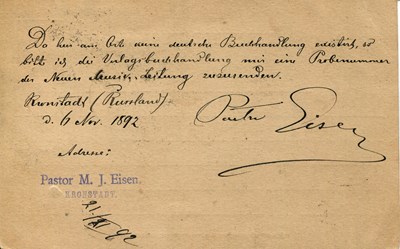 Da hier am Orte keine deutsche Buchhandlung existirt, so
bitte ich die Verlagsbuchhandlung mir eine Probenummer
der Neuen Musik-Zeitung zuzusenden.
Kronstadt (Russland)
d. 6 Nov. 1892
Pastor Eisen
Adresse:
Pastor M. J. Eisen.
KRONSTADT.
21/XI 92